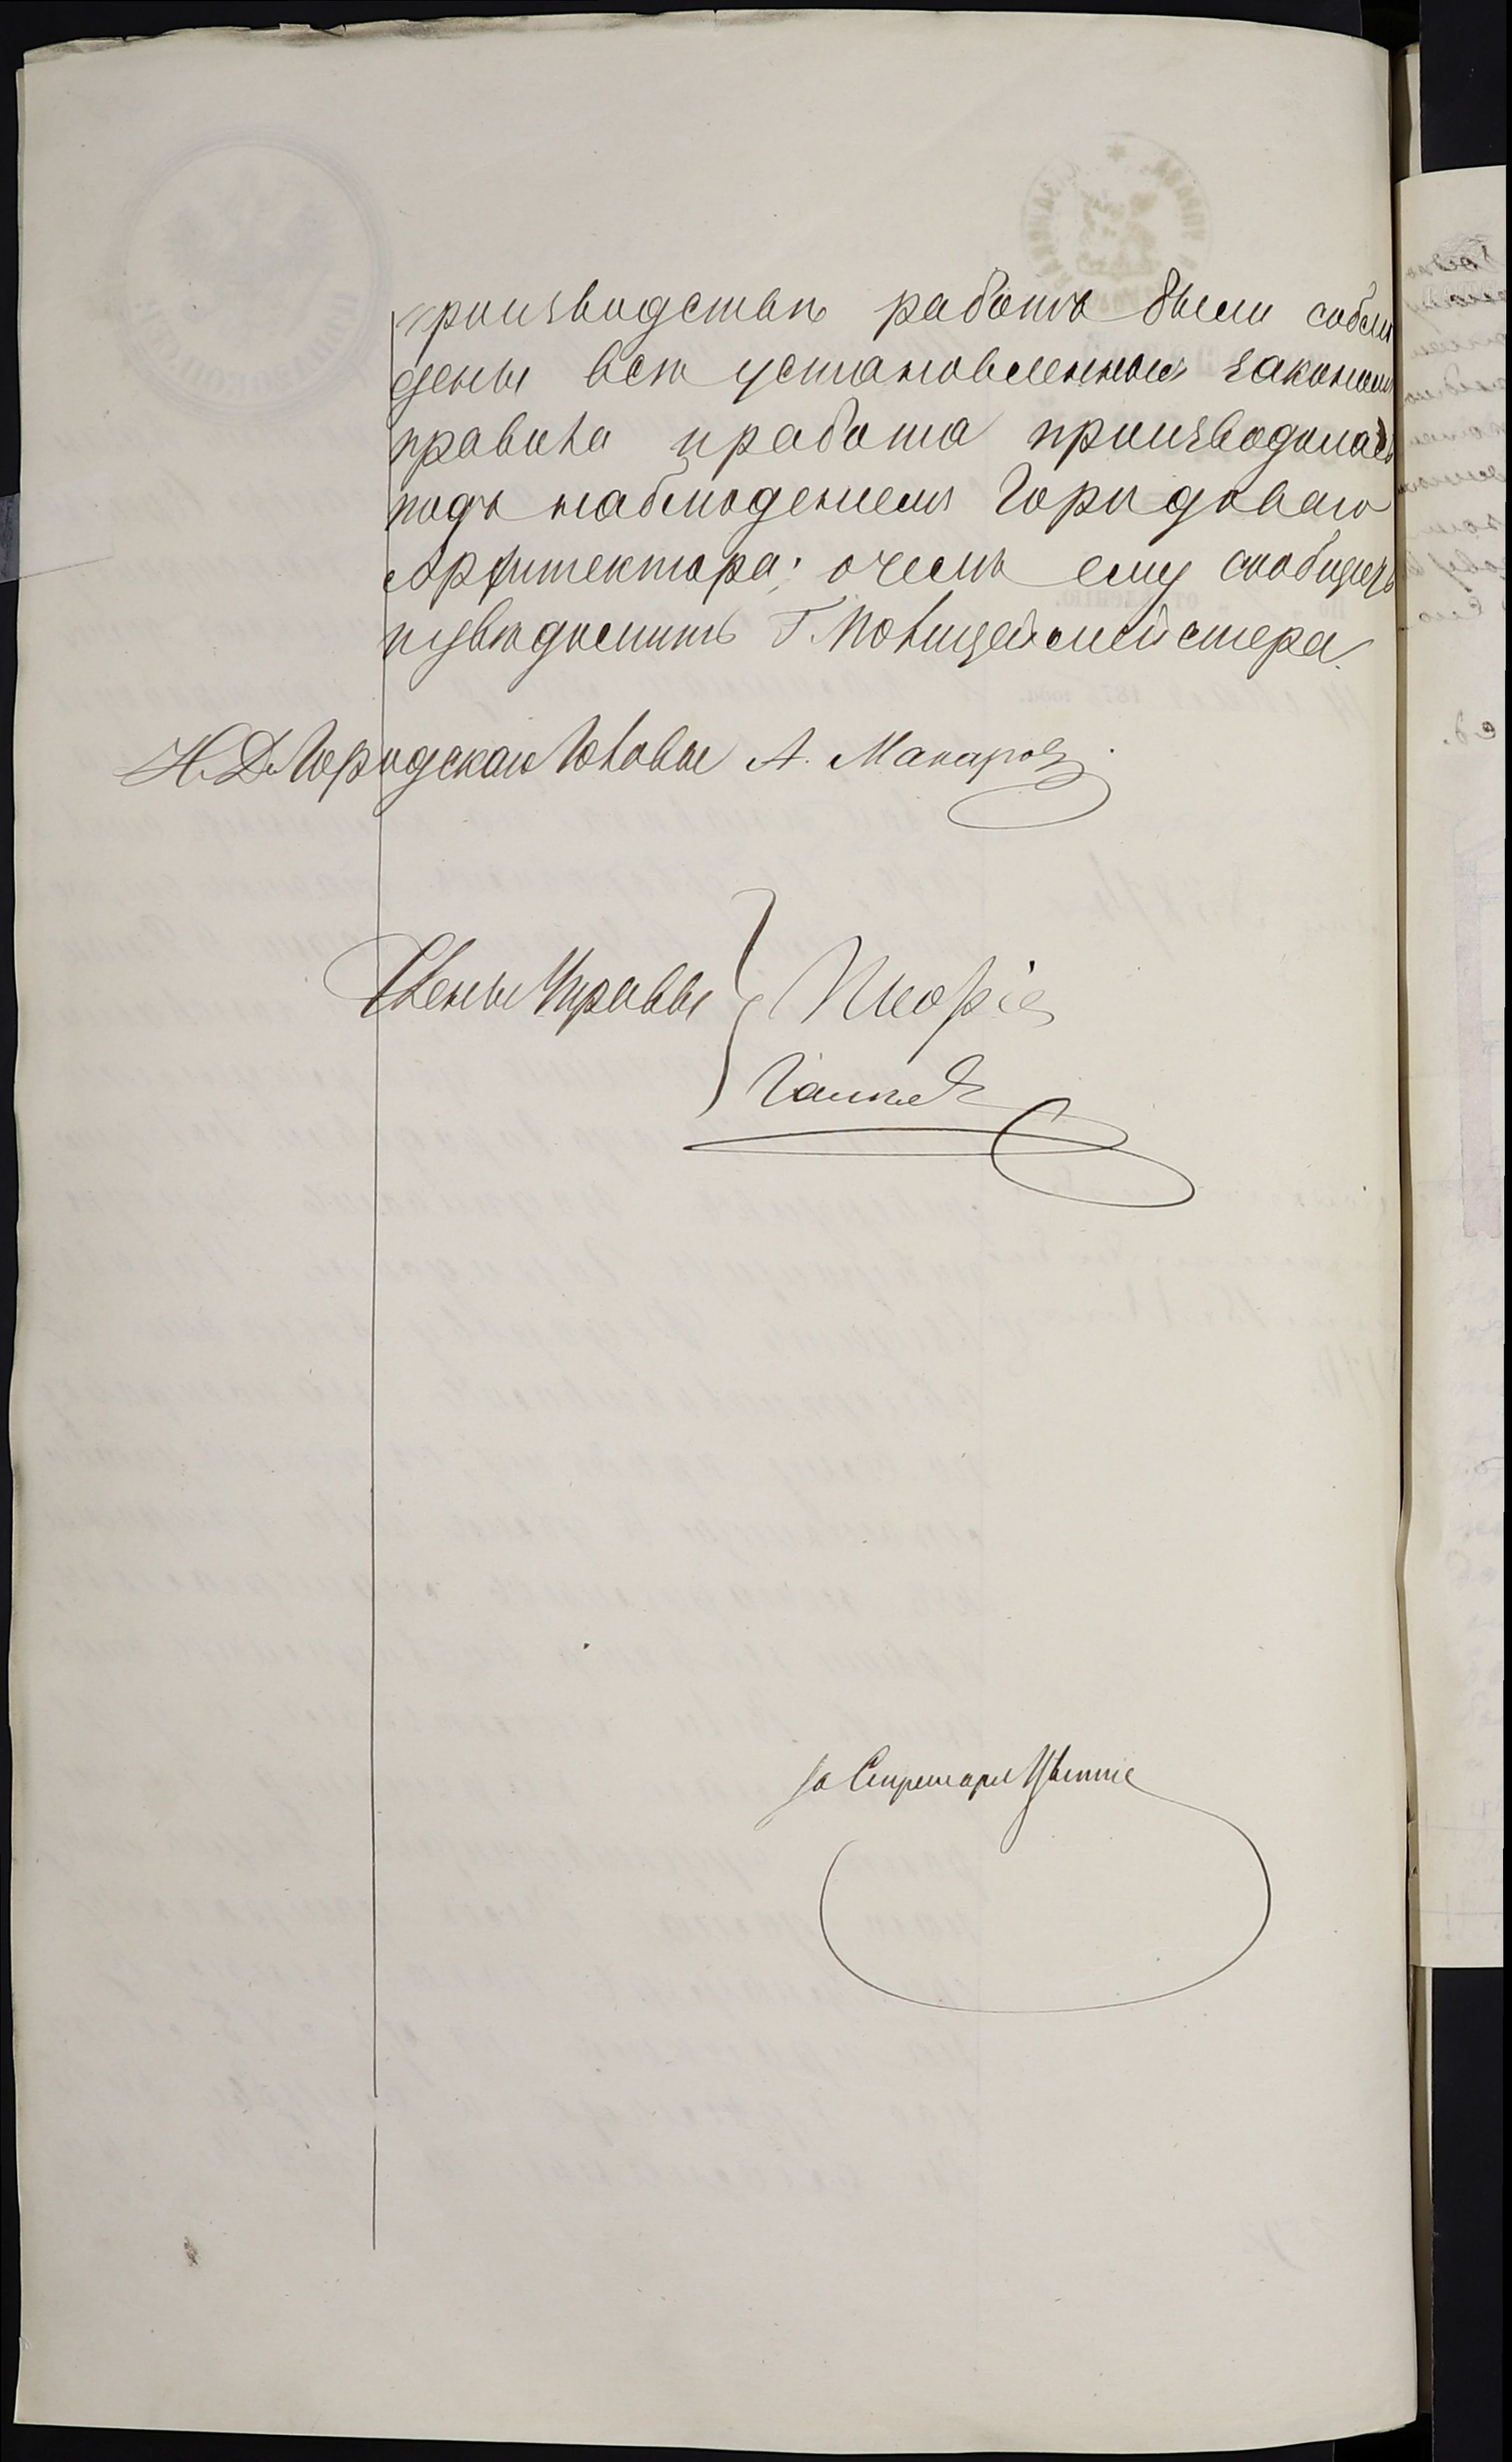 производствѣ работъ были соблю
дены всѣ установленныя закономъ
правила и работа производилась
подъ наблюденіемъ Городоваго
Архитектора; о чемъ ему сообщить
и увѣдомить Г. Полицеймейстера.
И. Д. Городскаго Головы А. Макаровъ
Члены Управы
За Секретаря